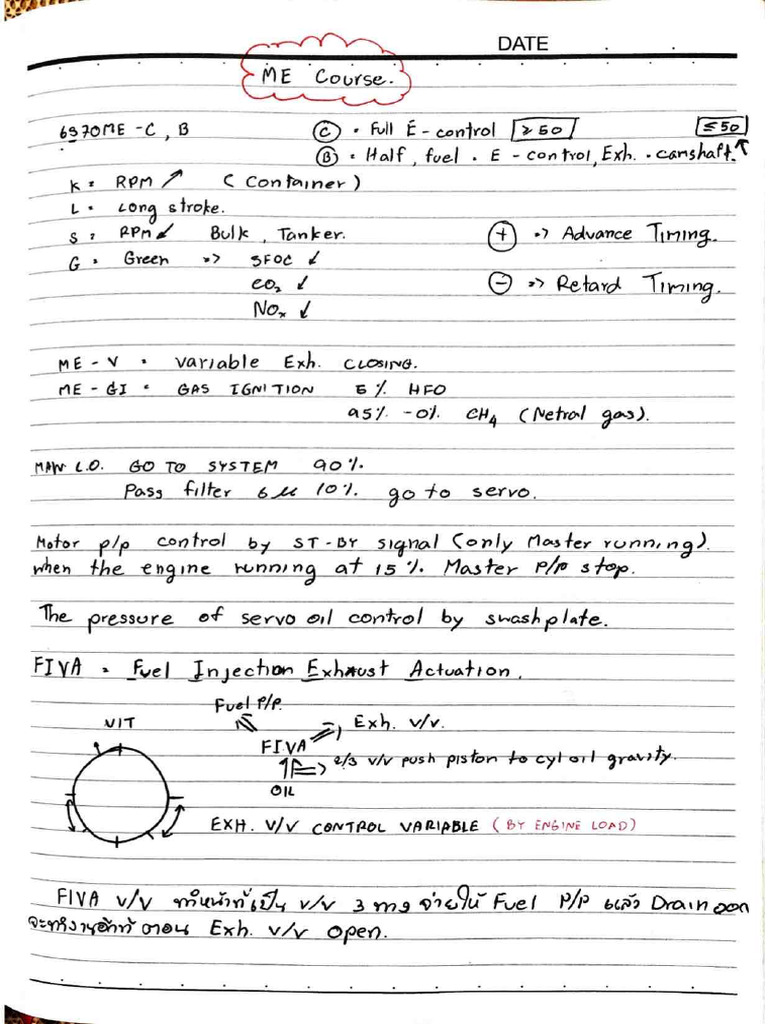 DATE
ME Course.
6S70ME-C, B
Ⓒ = Full E-control ≥50 ≤50
Ⓑ = Half, fuel = E-control, Exh. = camshaft.
K = RPM ↗ (Container)
L = Long stroke.
S = RPM ↙ Bulk, Tanker.
⊕ => Advance Timing.
G = Green => SFOC ↓
CO₂ ↓
⊖ => Retard Timing.
NOx ↓
ME-V = Variable Exh. CLOSING.
ME-GI = GAS IGNITION 5% HFO
95% -0% CH₄ (Netral gas).
MAN L.O. GO TO SYSTEM 90%.
Pass filter 6 μ 10% go to servo.
Motor p/p control by ST-BY signal (only Master running).
when the engine running at 15% Master P/P stop.
The pressure of servo oil control by swashplate.
FIVA = Fuel Injection Exhaust Actuation.
Fuel P/P.
VIT
Exh. v/v.
FIVA
2/3 v/v push piston to cyl oil gravity.
OIL
EXH. V/V CONTROL VARIABLE (BY ENGINE LOAD)
FIVA V/V ทำหน้าที่เป็น v/v 3 ทาง จ่ายให้ Fuel P/P แล้ว Drain ออก
จะทำงานอีกที ตอน Exh. v/v open.